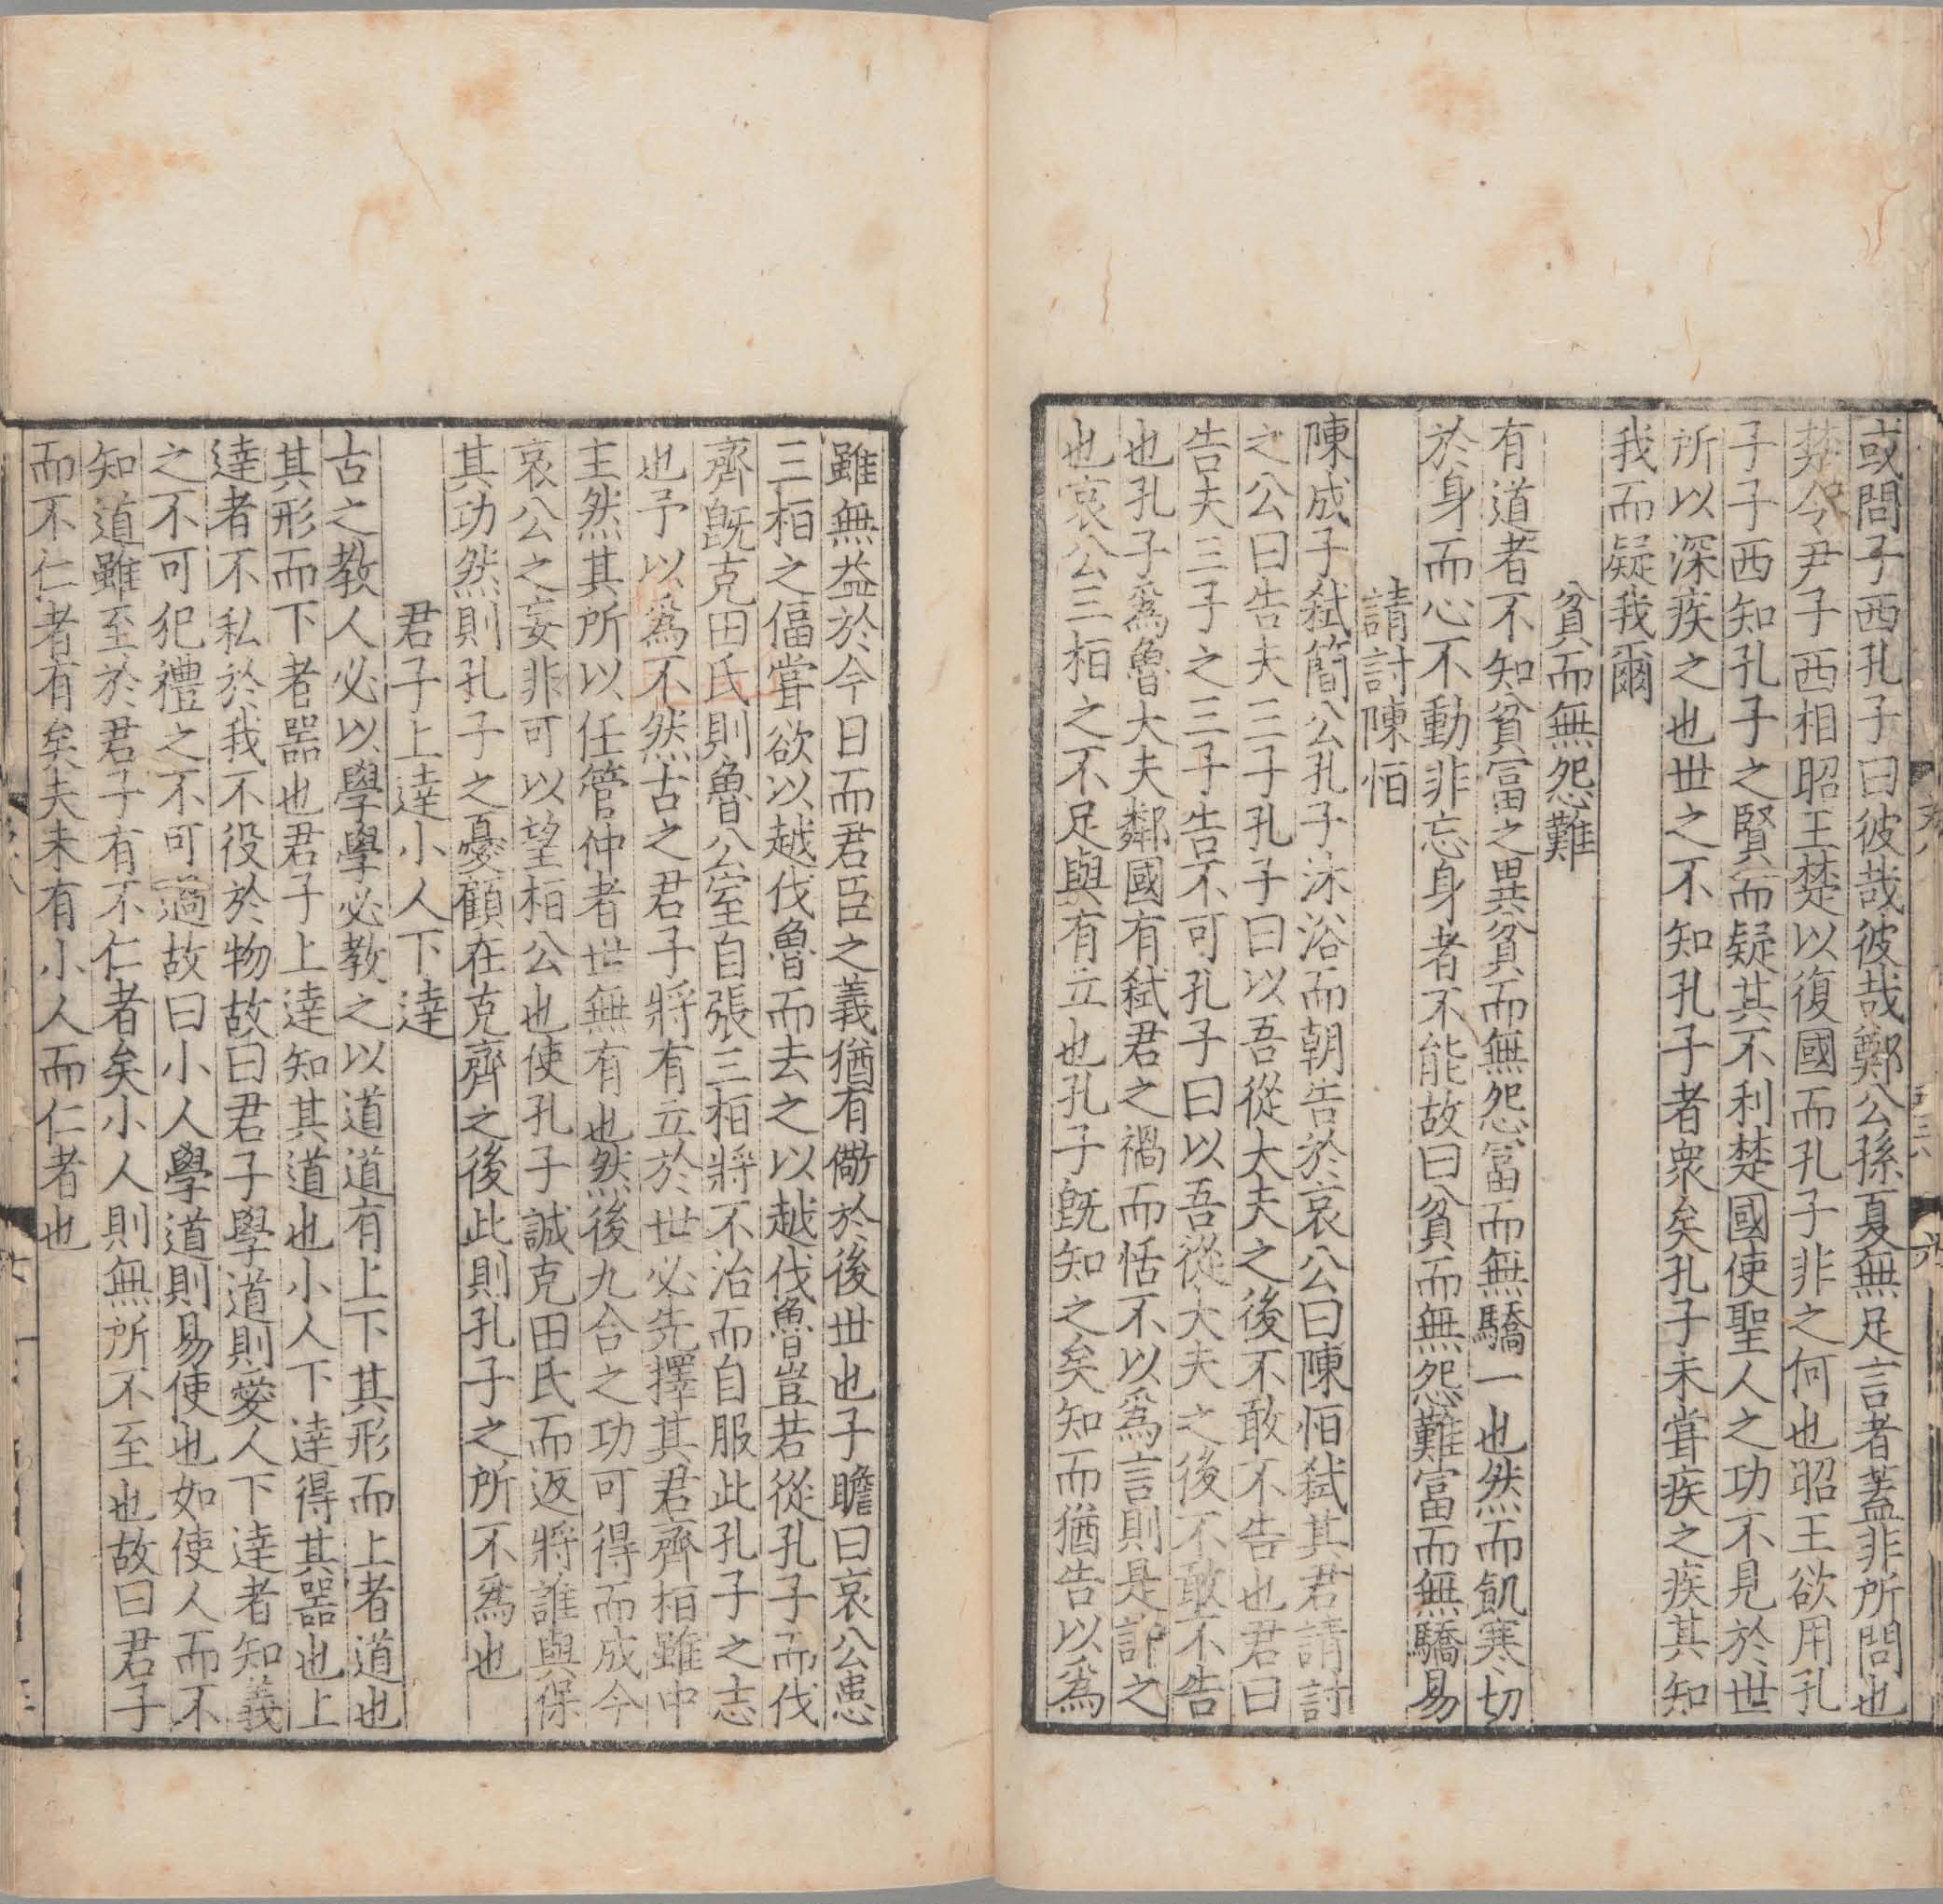 或問子西孔子曰彼哉彼哉鄭公孫夏無足言者蓋非所問也
楚令尹子西相昭王楚以復國而孔子非之何也昭王欲用孔
子子西知孔子之賢而疑其不利楚國使聖人之功不見於世
所以深疾之也世之不知孔子者衆矣孔子未甞疾之疾其知
我而疑我爾
貧而無怨難
有道者不知貧富之異貧而無怨富而無驕一也然而飢寒切
於身而心不動非忘身者不能故曰貧而無怨難富而無驕易
請討陳恒
陳成子弑簡公孔子沐浴而朝告於哀公曰陳恒弑其君請討
之公曰告夫三子孔子曰以吾從大夫之後不敢不告也君曰
告夫三子之三子告不可孔子曰以吾從大夫之後不敢不告
也孔子爲魯大夫鄰國有弑君之禍而恬不以爲言則是許之
也哀公三桓之不足與有立也孔子旣知之矣知而猶告以爲
雖無益於今日而君臣之義猶有儆於後世也子瞻曰哀公患
三桓之偪甞欲以越伐魯而去之以越伐魯豈若從孔子而伐
齊旣克田氏則魯公室自張三桓將不治而自服此孔子之志
也予以爲不然古之君子將有立於世必先擇其君齊桓雖中
主然其所以任管仲者世無有也然後九合之功可得而成今
哀公之妄非可以望桓公也使孔子誠克田氏而返將誰與保
其功然則孔子之憂顧在克齊之後此則孔子之所不爲也
君子上達小人下達
古之教人必以學學必教之以道道有上下其形而上者道也
其形而下者器也君子上達知其道也小人下達得其器也上
達者不私於我不役於物故曰君子學道則愛人下達者知義
之不可犯禮之不可過故曰小人學道則易使也如使人而不
知道雖至於君子有不仁者矣小人則無所不至也故曰君子
而不仁者有矣夫未有小人而仁者也